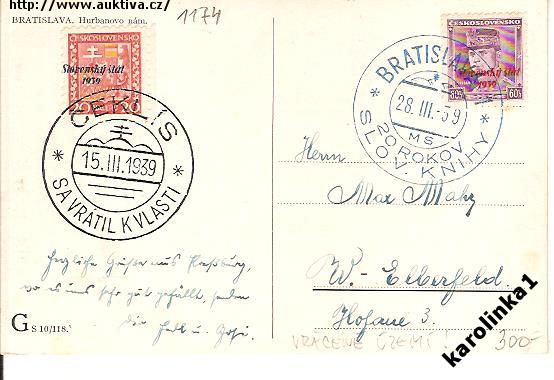 http://www.auktiva.cz/
BRATISLAVA. Hurbanovo nám.
1174
ČESKOSLOVENSKO
Slovenský štát
1939
ČEKLÍS
15.III.1939
* SA VRÁTIL K VLASTI *
ČESKOSLOVENSKO
Slovenský štát
1939
60h
BRATISLAVA
28.III.39
MS
20 ROKOV
* SLOV. KNIHY *
Herrn
Max
W.-Elberfeld.
Hofaue 3.
Herzliche Grüße aus Preßburg,
wo es uns sehr gut gefällt,
die
G S 10/118.
VRÁCENÉ ÚZEMÍ!
300-
karolinka1